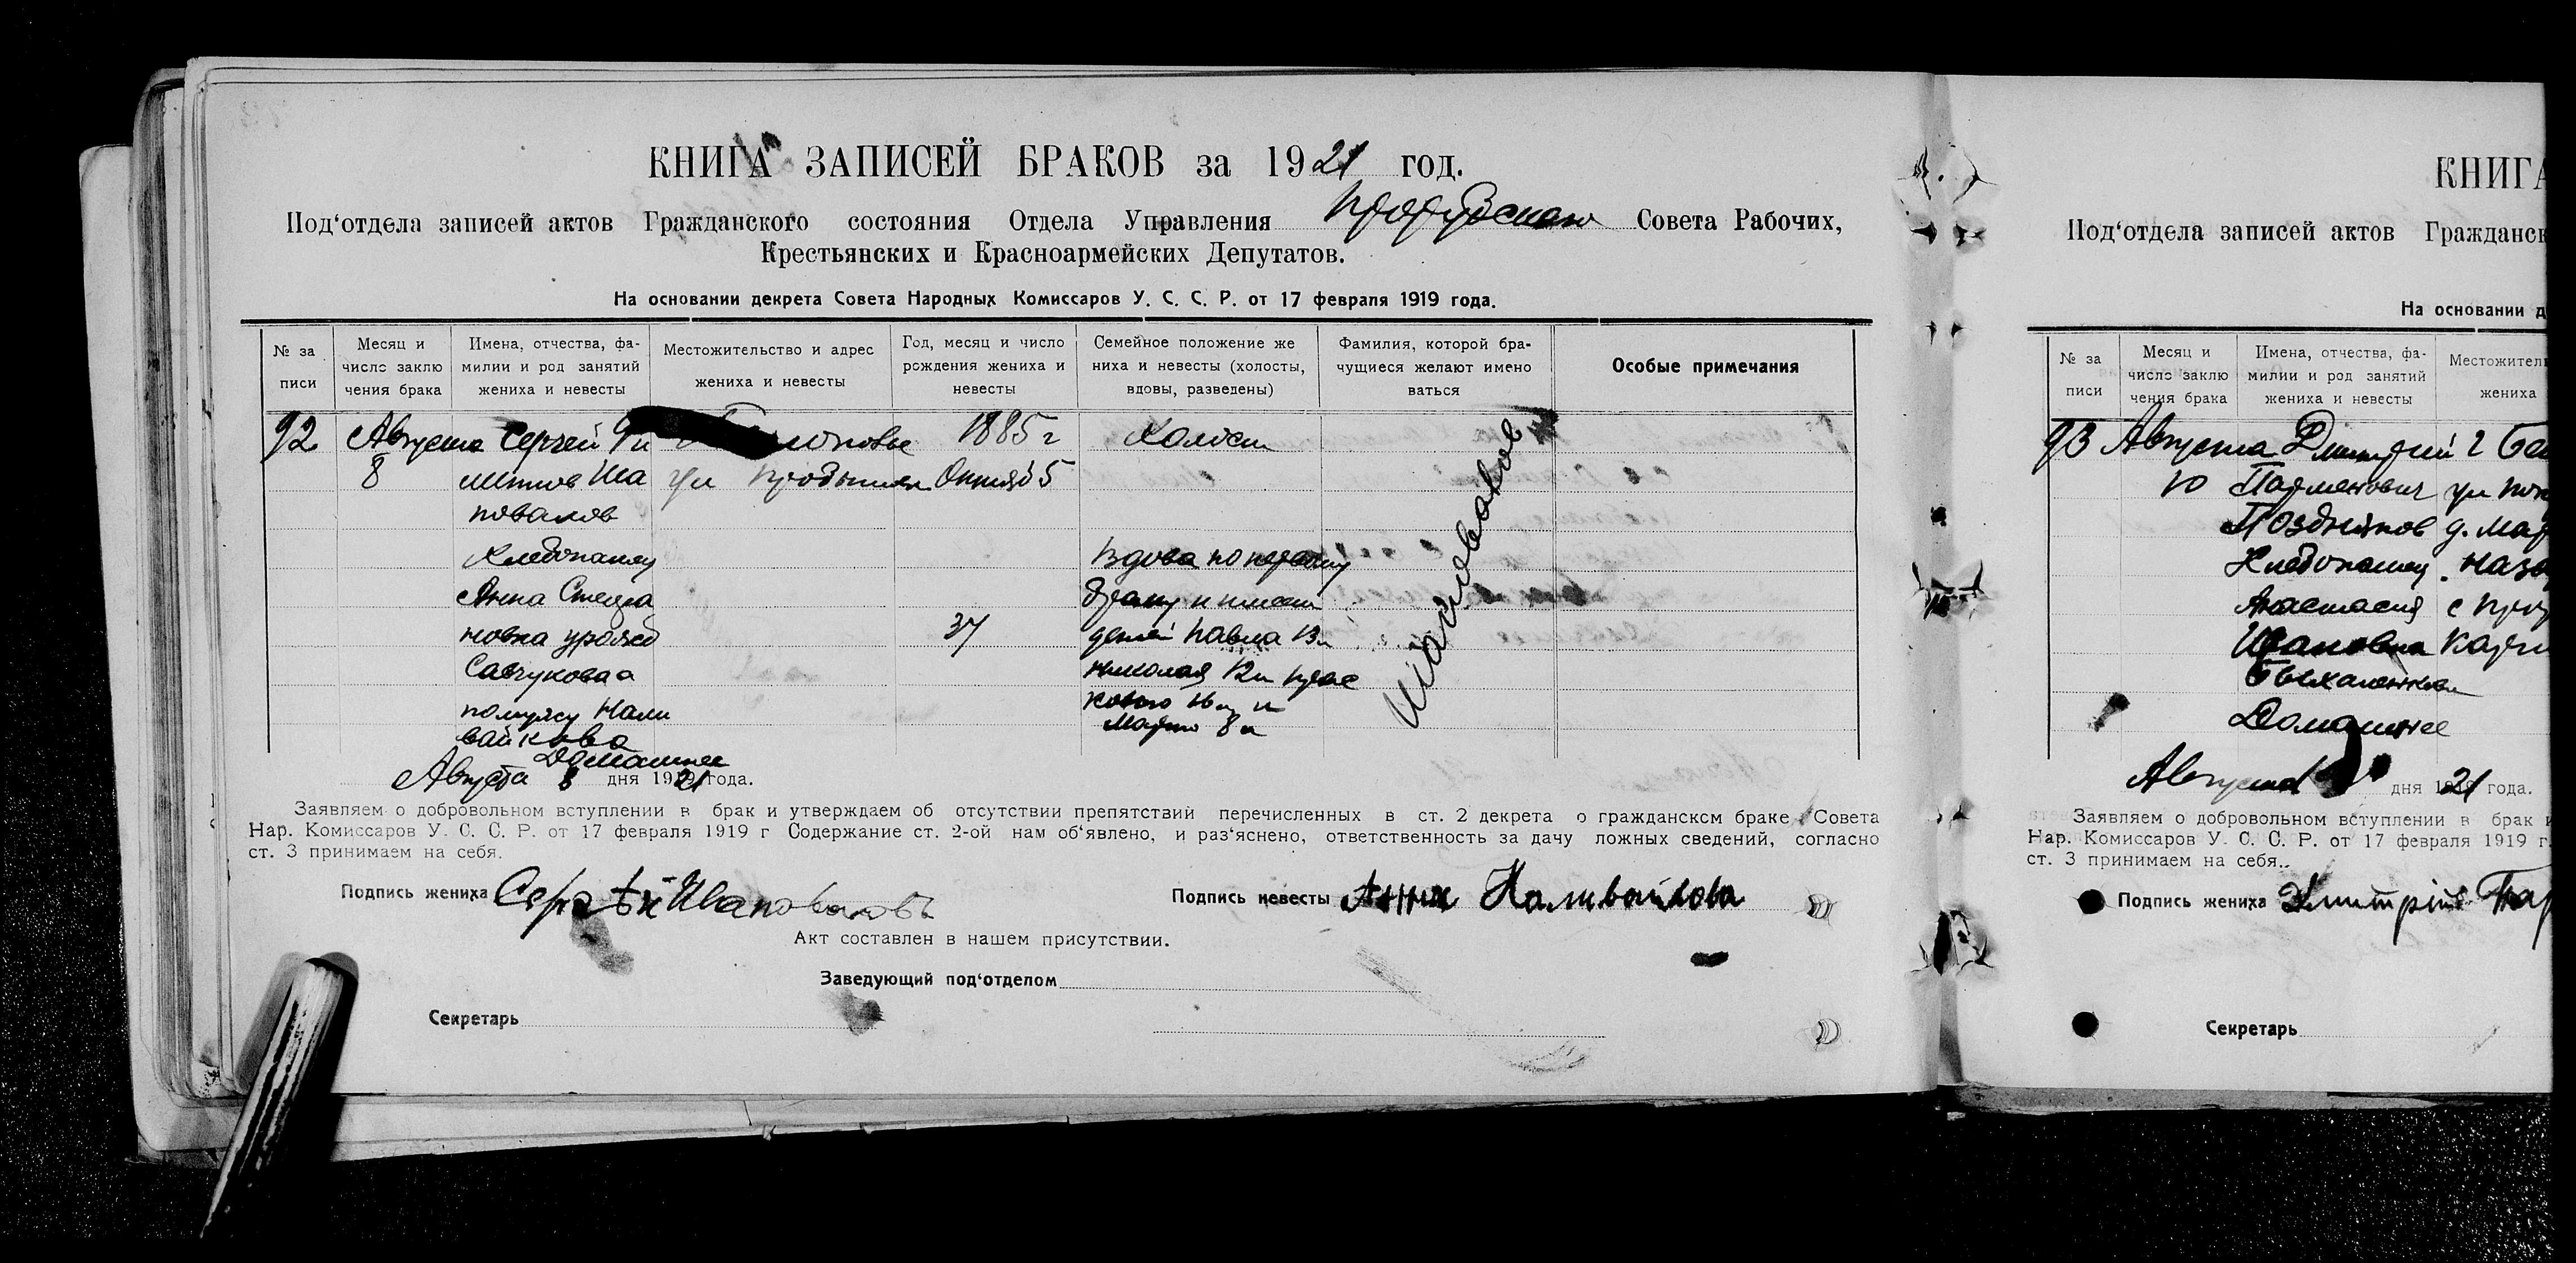 КНИГА ЗАПИСЕЙ БРАКОВ за 1921 год.
Под‘отдела записей актов Гражданского состояния Отдела Управления Совета Рабочих,
Крестьянских и Красноармейских Депутатов.
На основании декрета Совета Народных Комиссаров У. С. С. Р. от 17 февраля 1919 года.
№ за писи
Месяц и число заклю чения брака
Имена, отчества, фа- милии и род занятий жениха и невесты
Местожительство и адрес жениха и невесты
Год, месяц и число рождения жениха и невесты
Семейное положение же ниха и невесты (холосты, вдовы, разведены)
Фамилия, которой бра- чущиеся желают имено ваться
Особые примечания
92 Августа Сергей 1885 г Холост
8 Ша Октяб 5
повалов
Хлебопашец Вдова по первому
Анна Стефа браку и имеет
новна урожд 37 детей Павла 13 л
Савчукова а Николая 12 л
по мужу Нали
вайкова Марию 8 л
Домашнее
Шаповаловой
Августа 8 дня 1921 года.
Заявляем о добровольном вступлении в брак и утверждаем об отсутствии препятствий перечисленных в ст. 2 декрета о гражданском браке Совета
Нар. Комиссаров У. С. С. Р. от 17 февраля 1919 г Содержание ст. 2-ой нам об‘явлено, и раз‘яснено, ответственность за дачу ложных сведений, согласно
ст. 3 принимаем на себя.
Подпись жениха Сергѣй Шаповаловъ Подпись невесты Анна Наливайкова
Акт составлен в нашем присутствии.
Заведующий под‘отделом
Секретарь
КНИГА
Под‘отдела записей актов Гражданск
На основании д
№ за писи
Месяц и число заклю чения брака
Имена, отчества, фа- милии и род занятий жениха и невесты
Местожител жениха
93 Августа Дмитрий
10 Парменович
Поздняков
Хлебопашец
Анастасия
Ивановна
Домашнее
Августа дня 1921 года.
Заявляем о добровольном вступлении в брак и
Нар. Комиссаров У. С. С. Р. от 17 февраля 1919 г.
ст. 3 принимаем на себя.
Подпись жениха Дмитрій Пар
Секретарь